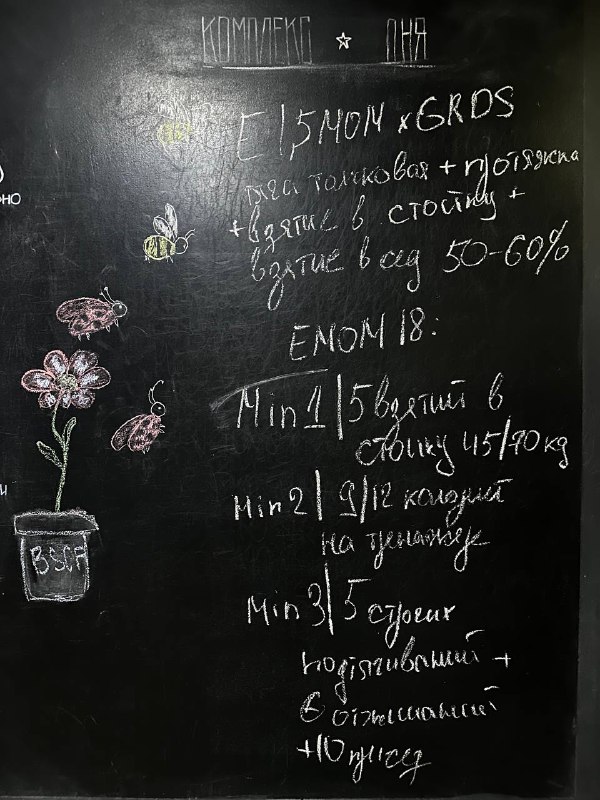 КОМПЛЕКС ☆ ДНЯ
E 1,5MOM x 6RDS
тяга толчковая + протяжка
+ взятие в стойку +
взятие в сед 50-60%
EMOM 18:
Min 1 | 5 взятий в
стойку 45/70 кд
Min 2 | 9/12 калорий
на тренажере
Min 3 | 5 строгих
подтягиваний +
6 отжиманий
+ 10 присед
BSCF
но
и